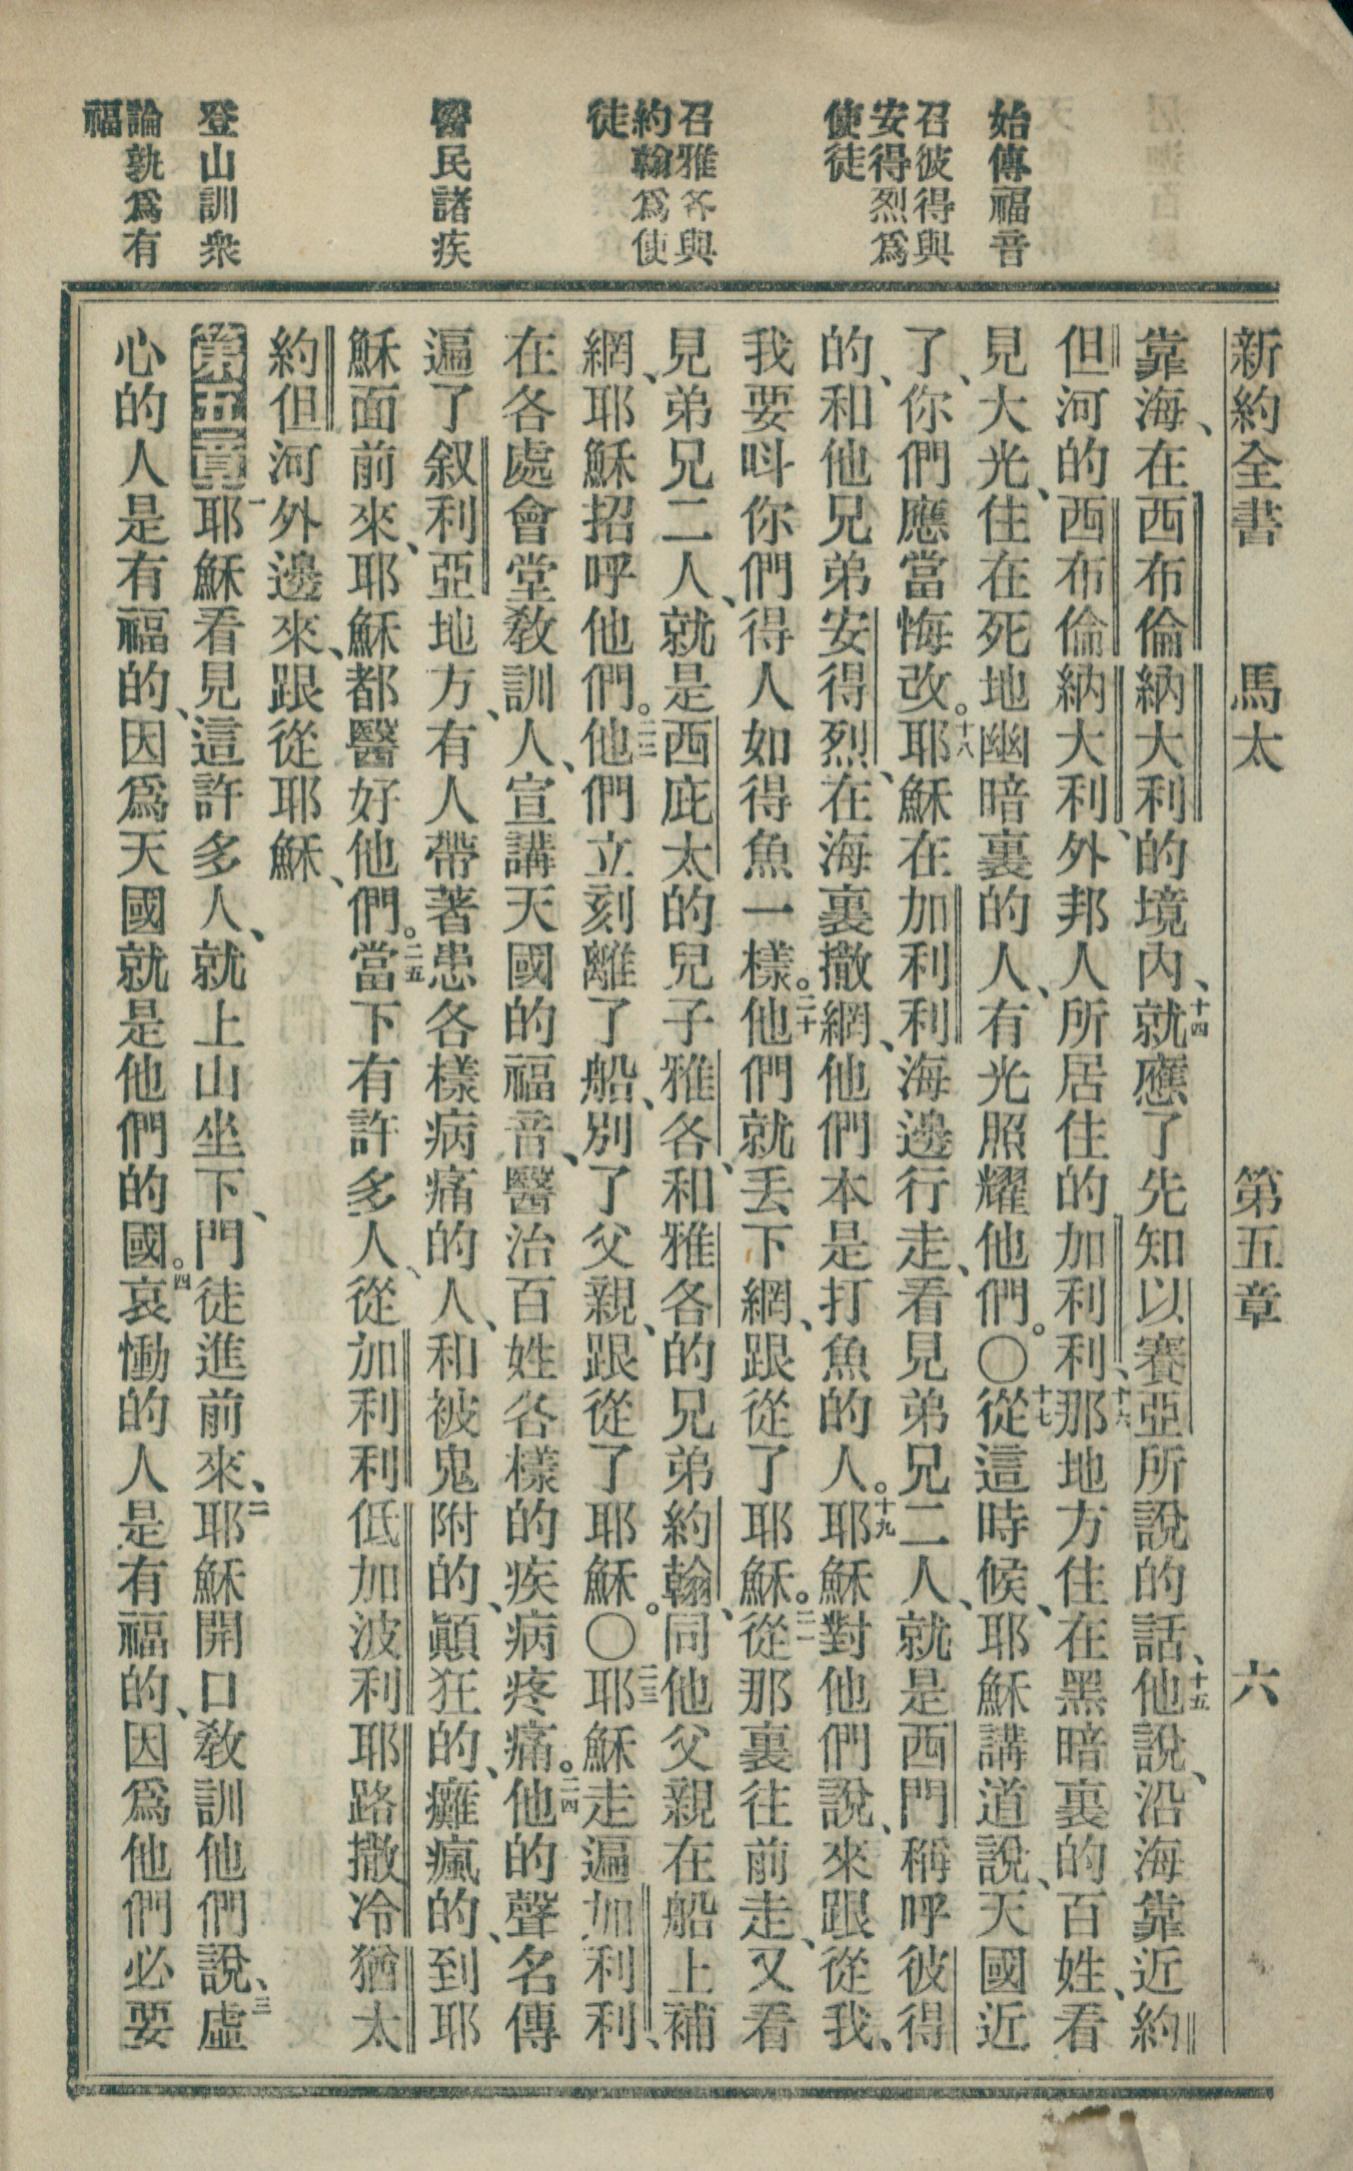 新約全書 馬太 第五章 六
始傳福音
召彼得與
安得烈爲
使徒
召雅各與
約翰爲使
徒
醫民諸疾
登山訓衆
論孰爲有
福
靠海、在西布倫納大利的境內、十四就應了先知以賽亞所說的話、十五他說、沿海靠近約
但河的西布倫納大利、外邦人所居住的加利利、十六那地方住在黑暗裏的百姓、看
見大光、住在死地幽暗裏的人、有光照耀他們。〇十七從這時候、耶穌講道說、天國近
了、你們應當悔改。十八耶穌在加利利海邊行走、看見弟兄二人、就是西門稱呼彼得
的、和他兄弟安得烈、在海裏撒網、他們本是打魚的人。十九耶穌對他們說、來跟從我、
我要呌你們得人如得魚一樣。二十他們就丟下網、跟從了耶穌。二一從那裏往前走、又看
見弟兄二人、就是西庇太的兒子雅各、和雅各的兄弟約翰、同他父親在船上補
網、耶穌招呼他們。二二他們立刻離了船、別了父親、跟從了耶穌。〇二三耶穌走遍加利利、
在各處會堂教訓人、宣講天國的福音、醫治百姓各樣的疾病疼痛。二四他的聲名傳
遍了叙利亞地方、有人帶著患各樣病痛的人、和被鬼附的、顚狂的、癱瘋的、到耶
穌面前來、耶穌都醫好他們。二五當下有許多人、從加利利低加波利耶路撒冷猶太
約但河外邊來、跟從耶穌、
第五章 一耶穌看見這許多人、就上山坐下、門徒進前來、二耶穌開口教訓他們說、三虛
心的人是有福的、因爲天國就是他們的國。四哀慟的人是有福的、因爲他們必要